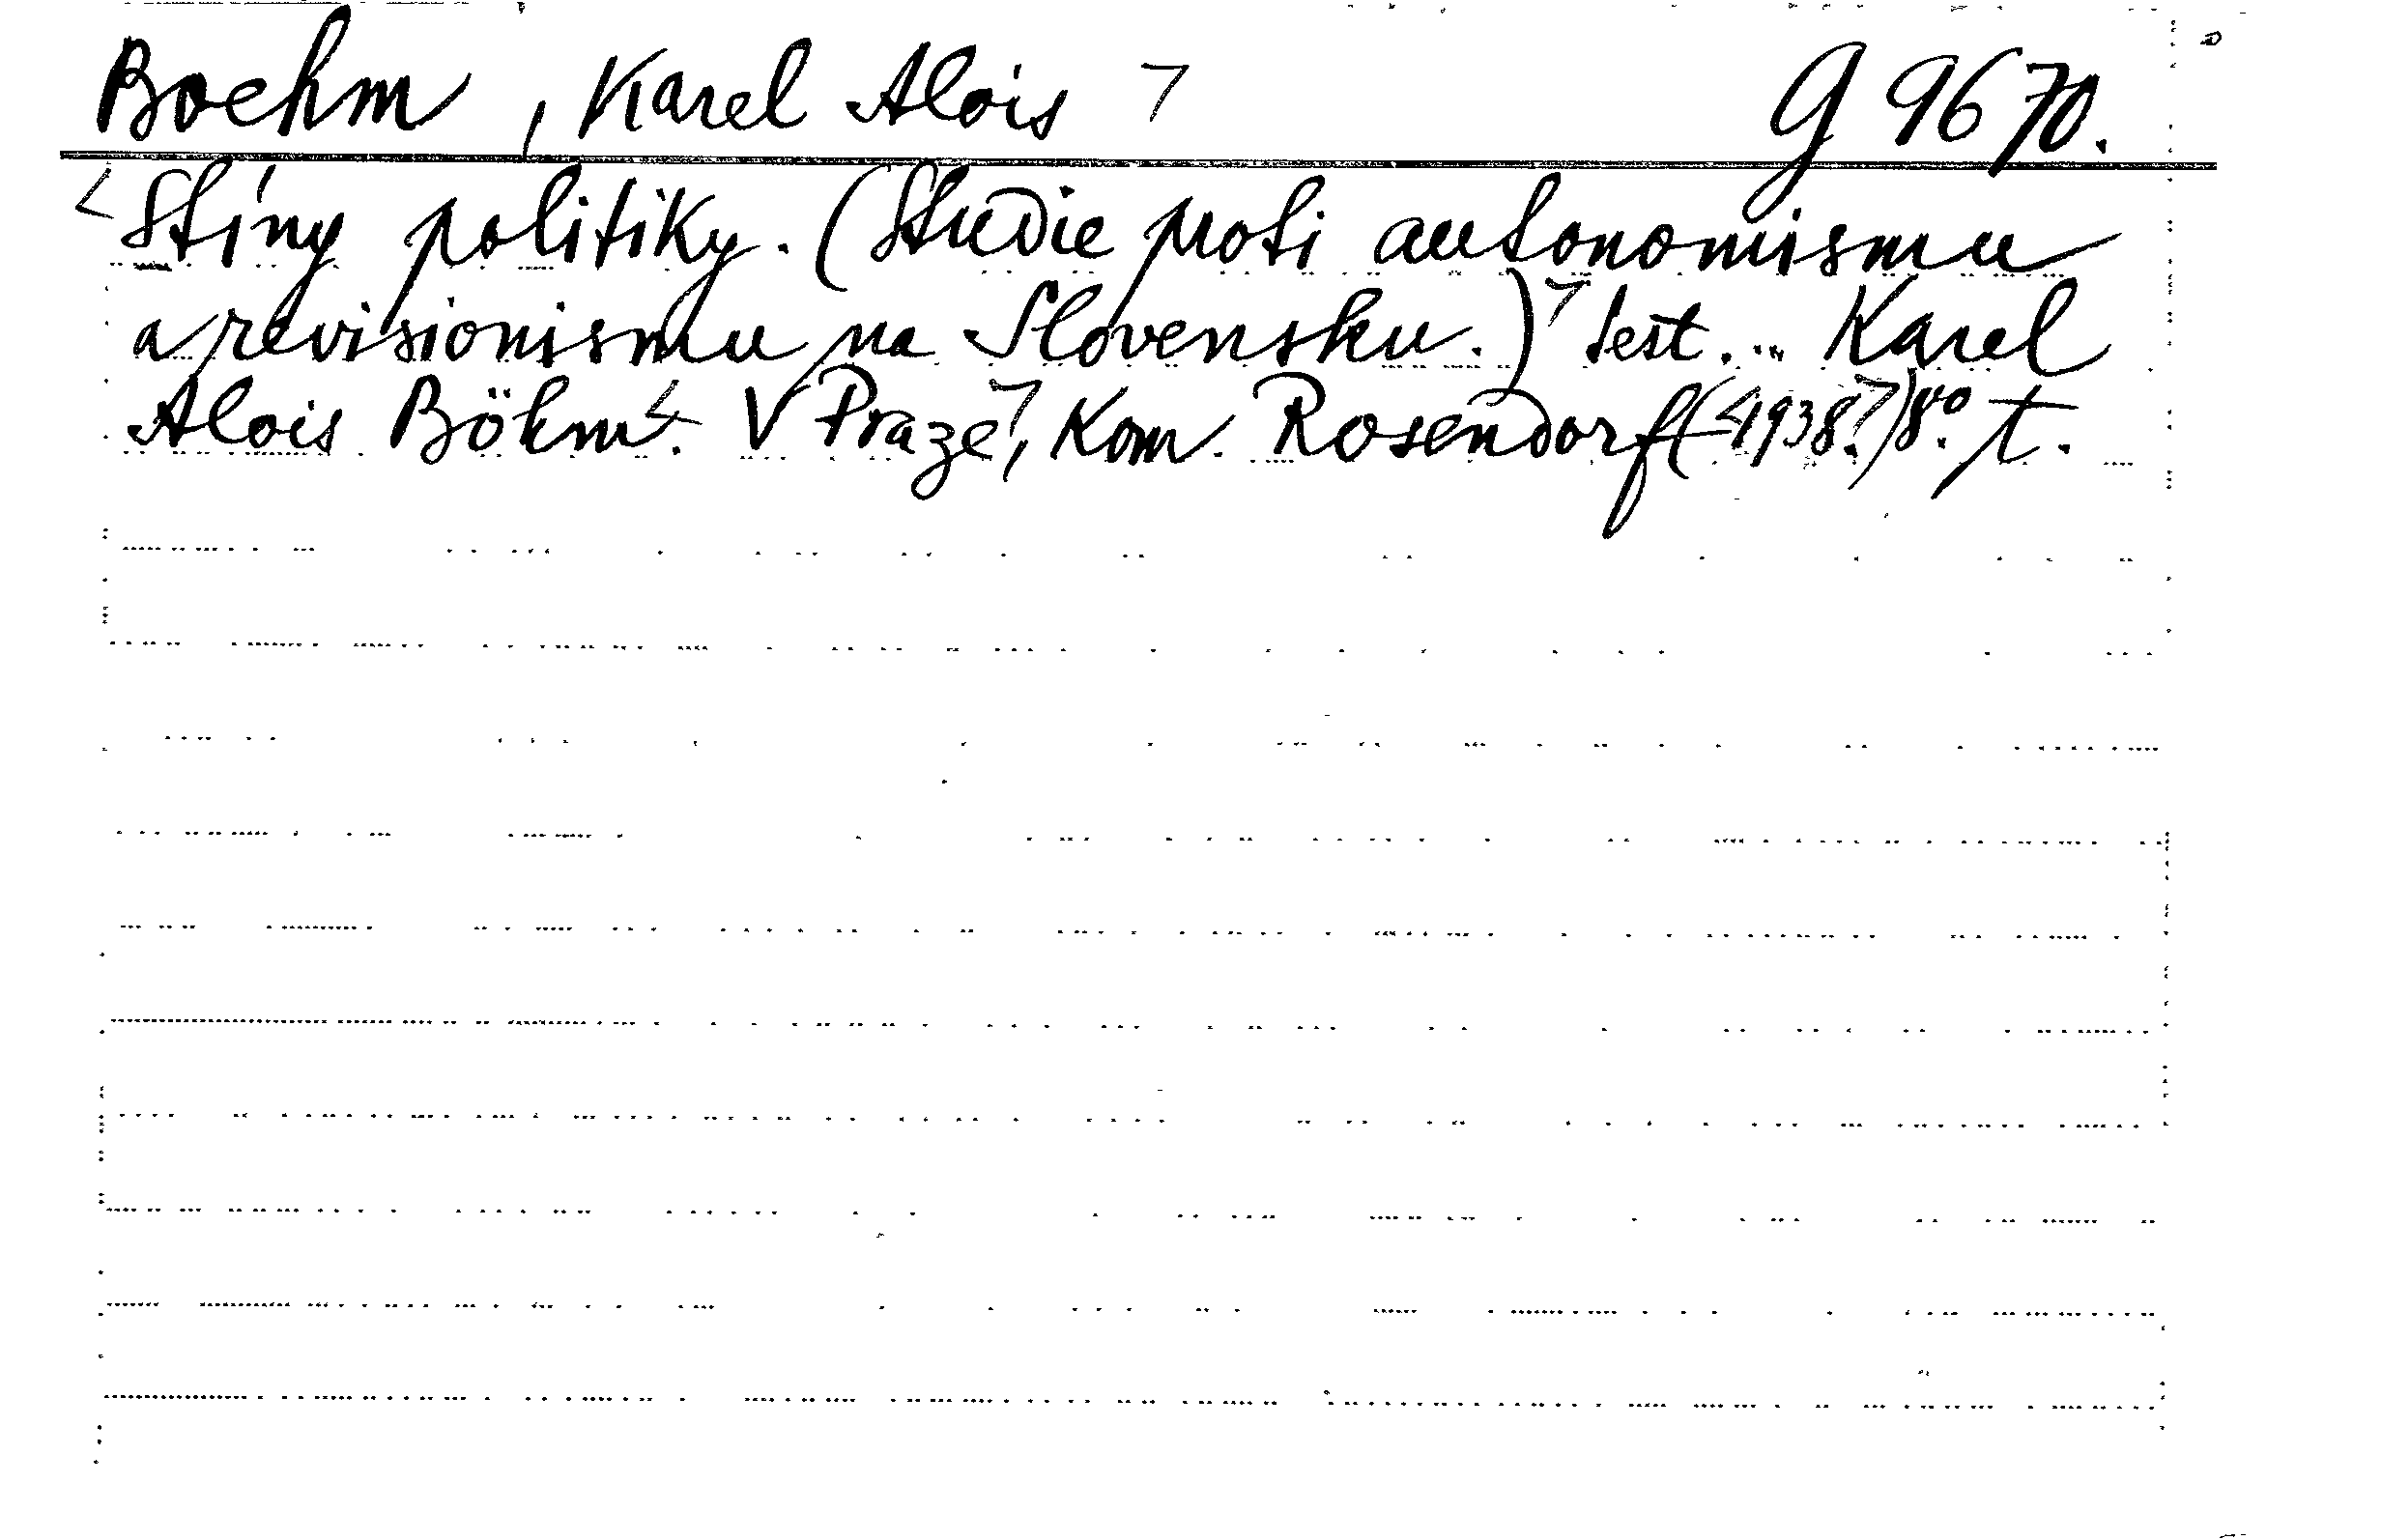 Boehm, Karel Alois ⁊ G 9670.
<Stíny politiky. (Studie proti autonomismu
a revisionismu na Slovensku.)⁊ Sest. ... Karel
Alois Böhm<. V Praze⁊, Kom. Rosendorf (<1938.⁊) 8º. t.